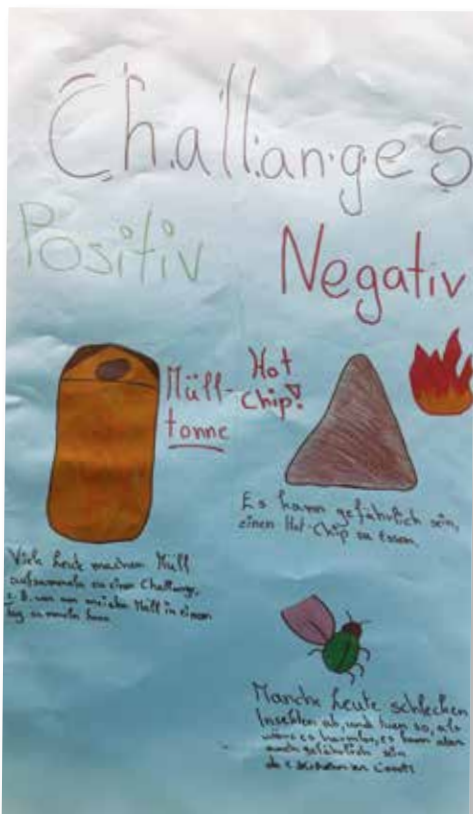 Challanges
Positiv
Negativ
Müll-
tonne
Hot
Chip!
Es kann gefährlich sein,
einen Hot-Chip zu essen
Viele Leute machen Müll
aufsammeln zu einer Challange,
z.B. wer am meisten Müll in einem
Tag sammeln kann
Manche Leute schlecken
Insekten ab, und tuen so, als
wäre es harmlos, es kann aber
auch gefährlich sein